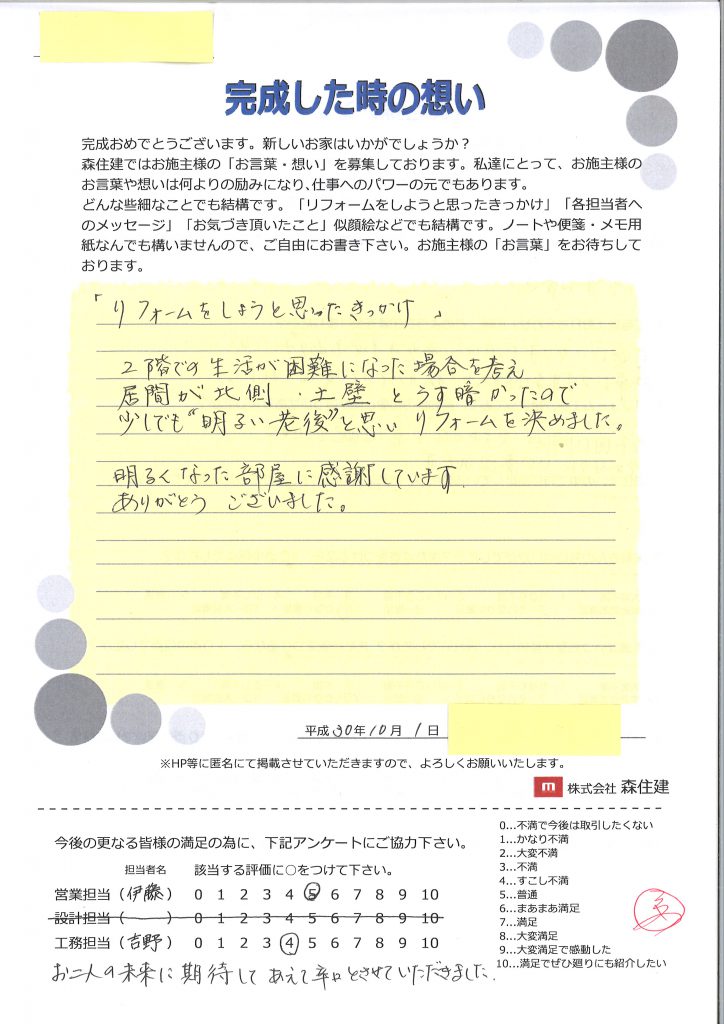 完成した時の想い
完成おめでとうございます。新しいお家はいかがでしょうか?
森住建ではお施主様の「お言葉・想い」を募集しております。私達にとって、お施主様の
お言葉や想いは何よりの励みになり、仕事へのパワーの元でもあります。
どんな些細なことでも結構です。「リフォームをしようと思ったきっかけ」「各担当者へ
のメッセージ」「お気づき頂いたこと」似顔絵などでも結構です。ノートや便箋・メモ用
紙なんでも構いませんので、ご自由にお書き下さい。お施主様の「お言葉」をお待ちして
おります。
「リフォームをしようと思ったきっかけ」
2階での生活が困難になった場合を考え
居間が北側・土壁とうす暗かったので
少しでも"明るい老後"と思いリフォームを決めました。
明るくなった部屋に感謝しています.
ありがとう ございました。
平成30年10月1日
※HP等に匿名にて掲載させていただきますので、よろしくお願いいたします。
m 株式会社 森住建
今後の更なる皆様の満足の為に、下記アンケートにご協力下さい。
担当者名 該当する評価に○をつけて下さい。
営業担当(伊藤) 0 1 2 3 4 5 6 7 8 9 10
設計担当( ) 0 1 2 3 4 5 6 7 8 9 10
工務担当(吉野) 0 1 2 3 4 5 6 7 8 9 10
お二人の未来に期待して あえて辛口とさせていただきました.
0…不満で今後は取引したくない
1…かなり不満
2…大変不満
3…不満
4…すこし不満
5…普通
6…まあまあ満足
7…満足
8…大変満足
9…大変満足で感動した
10…満足でぜひ廻りにも紹介したい